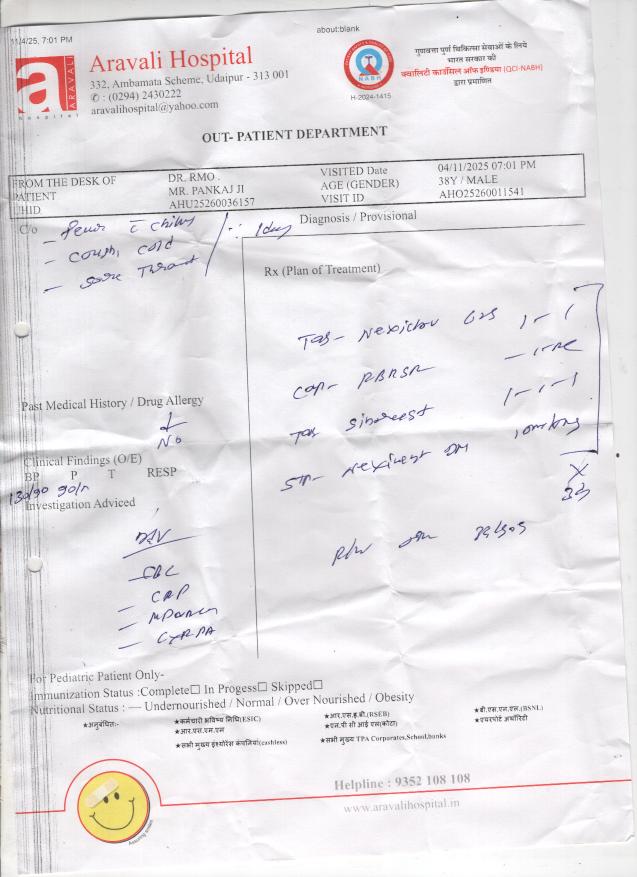 11/4/25, 7:01 PM
about:blank
ARAVALI
hospital
Aravali Hospital
332, Ambamata Scheme, Udaipur - 313 001
✆ : (0294) 2430222
aravalihospital@yahoo.com
NABH
H-2024-1415
गुणवत्ता पुर्ण चिकित्सा सेवाओं के लिये
भारत सरकार की
क्वालिटी काउंसिल ऑफ इण्डिया (QCI-NABH)
द्वारा प्रमाणित
OUT- PATIENT DEPARTMENT
FROM THE DESK OF DR. RMO . VISITED Date 04/11/2025 07:01 PM
PATIENT MR. PANKAJ JI AGE (GENDER) 38Y / MALE
UHID AHU25260036157 VISIT ID AHO25260011541
C/o
Fever c̄ chills
- Cough, cold
- Sore Throat
1 day
Diagnosis / Provisional
Rx (Plan of Treatment)
Tab- 1-1
Cap-
Tab Sinarest 1-1-1
DM
Past Medical History / Drug Allergy
No
Clinical Findings (O/E)
BP P T RESP
130/90 90/
Investigation Adviced
- CBC
- CRP
-
-
For Pediatric Patient Only-
Immunization Status :Complete☐ In Progess☐ Skipped☐
Nutritional Status : — Undernourished / Normal / Over Nourished / Obesity
★अनुबंधित:-
★कर्मचारी भविष्य निधि(ESIC)
★आर.एस.एम.एल
★सभी मुख्य इंश्योरेंस कंपनियां(cashless)
★आर.एस.ई.बी.(RSEB)
★एन.पी सी आई एल(कोटा)
★सभी मुख्य TPA Corporates,School,banks
★बी.एस.एन.एल.(BSNL)
★एयरपोर्ट अथॉरिटी
Helpline : 9352 108 108
www.aravalihospital.in
Assuring smiles